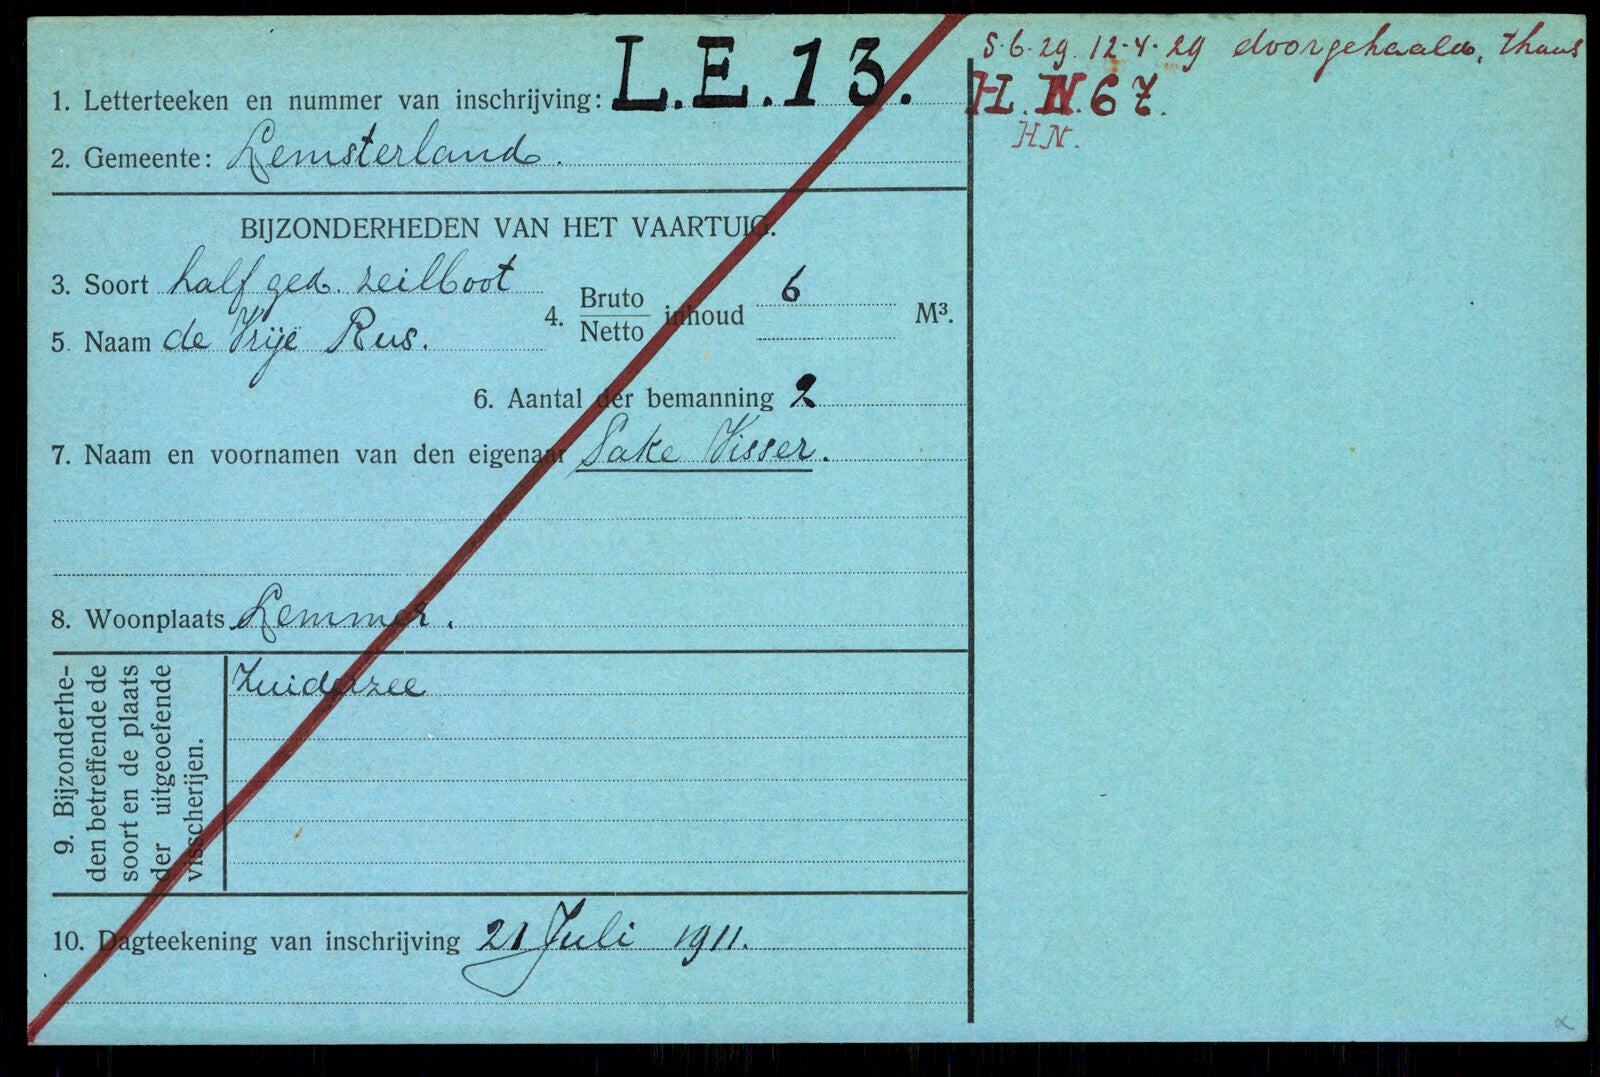 1. Letterteeken en nummer van inschrijving: L.E.13.
2. Gemeente: Lemsterland.
BIJZONDERHEDEN VAN HET VAARTUIG.
3. Soort half ged. zeilboot
4. Bruto inhoud 6 M³.
Netto
5. Naam de Vrije Rus.
6. Aantal der bemanning 2
7. Naam en voornamen van den eigenaar Sake Visser.
8. Woonplaats Lemmer.
9. Bijzonderhe-
den betreffende de
soort en de plaats
der uitgeoefende
visscherijen.
Zuiderzee
10. Dagteekening van inschrijving 21 Juli 1911.
5.6.29. 12-4-29 doorgehaald, thans
H.N.67.
H.N.